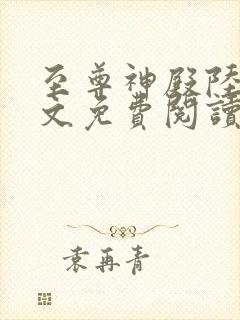 至尊神殿陸
文免費閱讀
袁再青